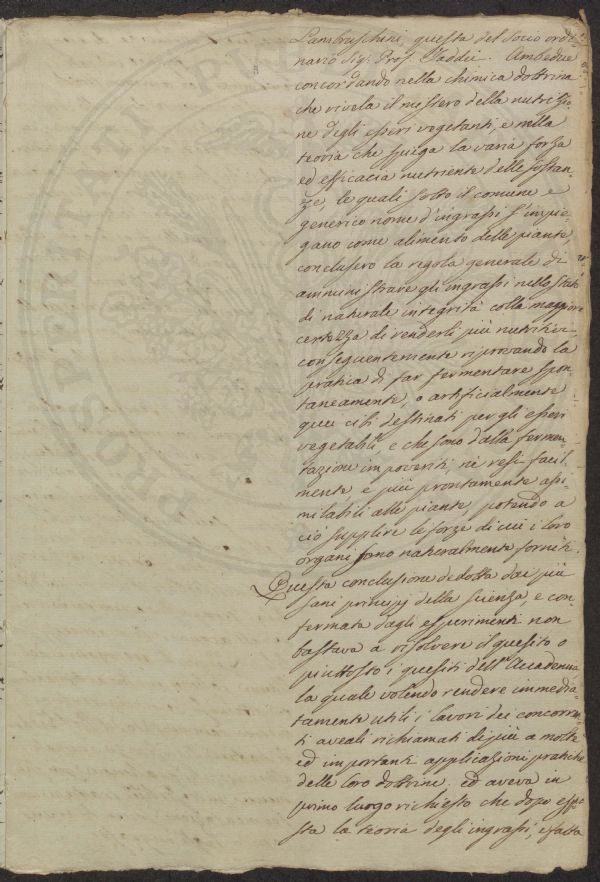 Lambruschini, questa del Socio ordi-
nario Sig. Prof. Taddei. Ambedue
concordando nella chimica dottrina
che rivela il mistero della nutrizio-
ne degli esseri vegetanti, e nella
teoria che spiega la varia forza
ed efficacia nutriente delle sostan-
ze, le quali sotto il comune e
generico nome d'ingrassi s'impie-
gano come alimento delle piante,
conclusero la regola generale di
amministrare gli ingrassi nello stato
di naturale integrità colla maggiore
certezza di renderli più nutritivi
conseguentemente riprovando la
pratica di far fermentare spon-
taneamente, o artificialmente
quei cibi destinati per gli esseri
vegetabili, e che sono dalla fermen-
tazione impoveriti, nè resi facil-
mente e più prontamente assi-
milabili alle piante, potendo a
ciò supplire le forze di cui i loro
organi sono naturalmente forniti.
Questa conclusione dedotta dai più
sani principj della scienza, e con-
fermata dagli esperimenti non
bastava a risolvere il quesito o
piuttosto i quesiti dell'Accademia
la quale volendo rendere immedia-
tamente utili i lavori dei concorren-
ti aveali richiamati di più a molte
ed importanti applicazioni pratiche
delle loro dottrine. ed aveva in
primo luogo richiesto che dopo espo-
sta la teoria degli ingrassi, esatta
PROSPERITATI PUBL